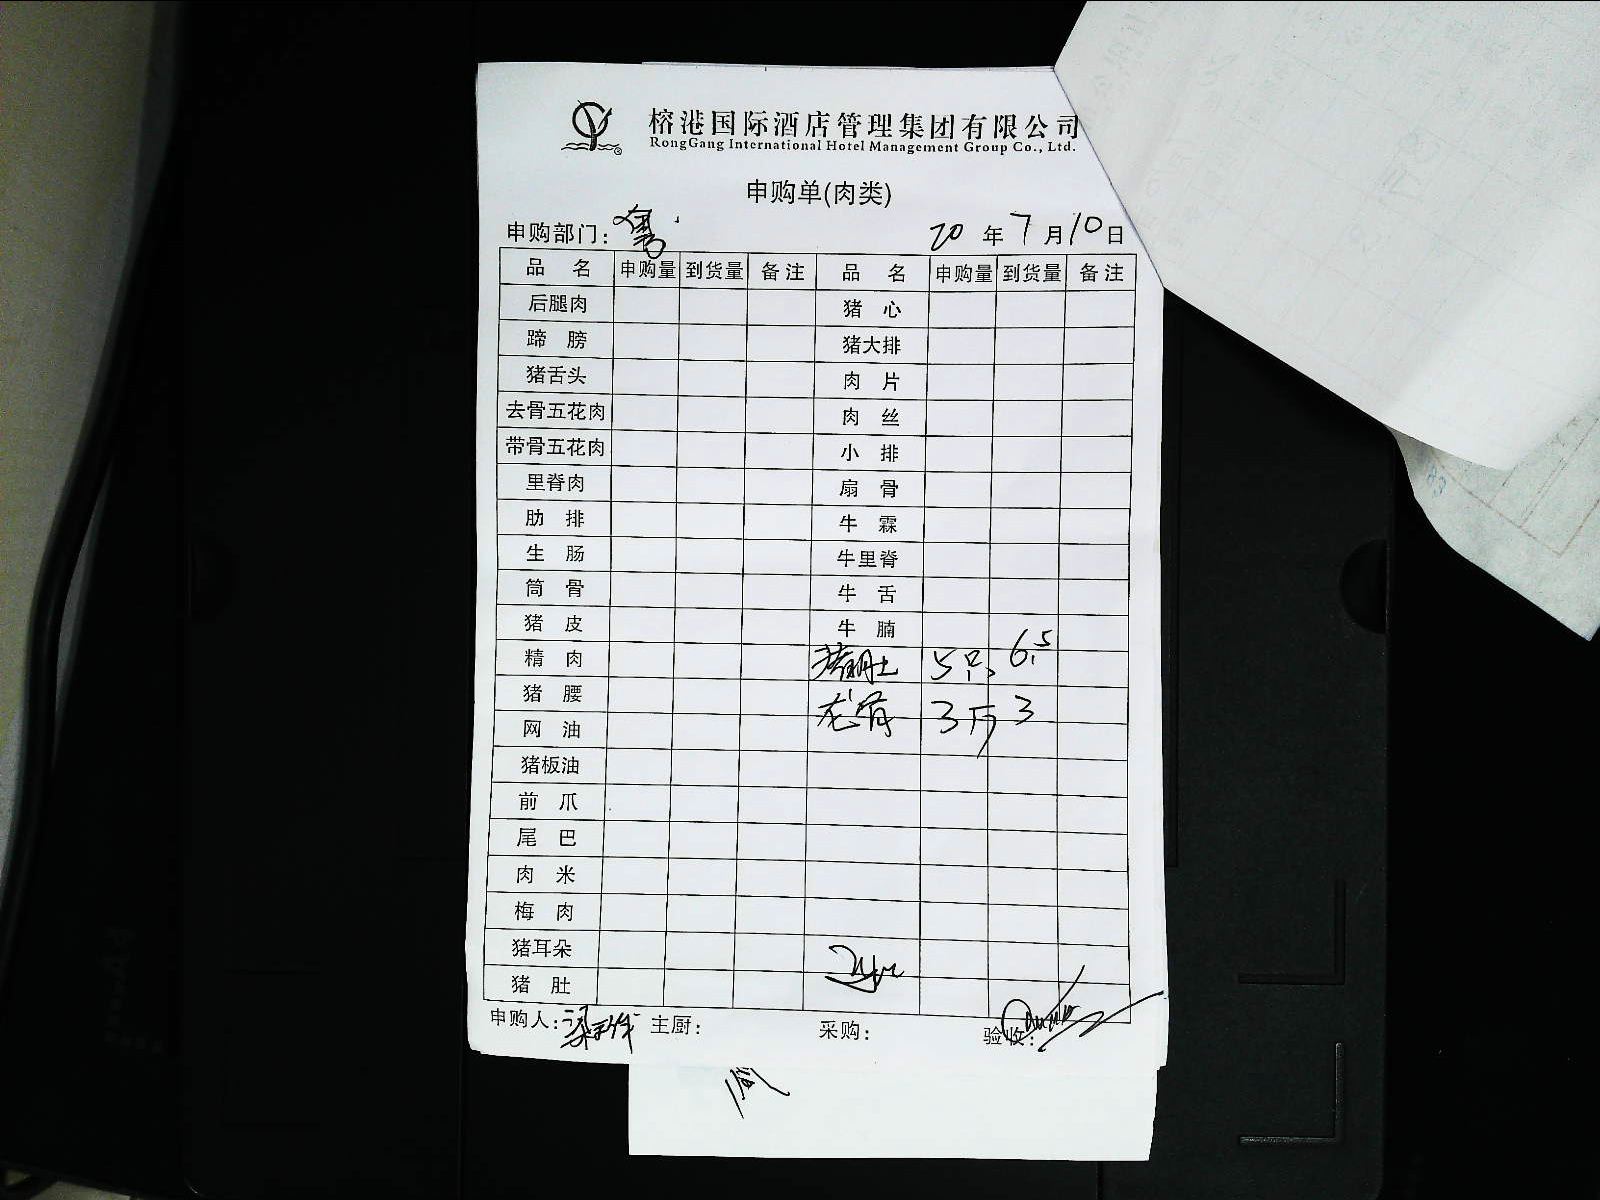 榕港国际酒店管理集团有限公司
RongGang International Hotel Management Group Co., Ltd.
申购单(肉类)
申购部门： 20 年 7 月 10 日
品 名 申购量 到货量 备注 品 名 申购量 到货量 备注
后腿肉 猪 心
蹄 膀 猪大排
猪舌头 肉 片
去骨五花肉 肉 丝
带骨五花肉 小 排
里脊肉 扇 骨
肋 排 牛 霖
生 肠 牛里脊
筒 骨 牛 舌
猪 皮 牛 腩
精 肉 猪肚 5只 6.5
猪 腰 龙骨 3斤 3
网 油
猪板油
前 爪
尾 巴
肉 米
梅 肉
猪耳朵
猪 肚
申购人： 主厨： 采购： 验收：